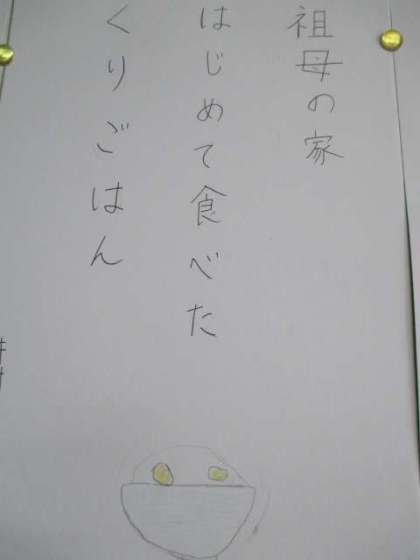 祖母の家
はじめて食べた
くりごはん